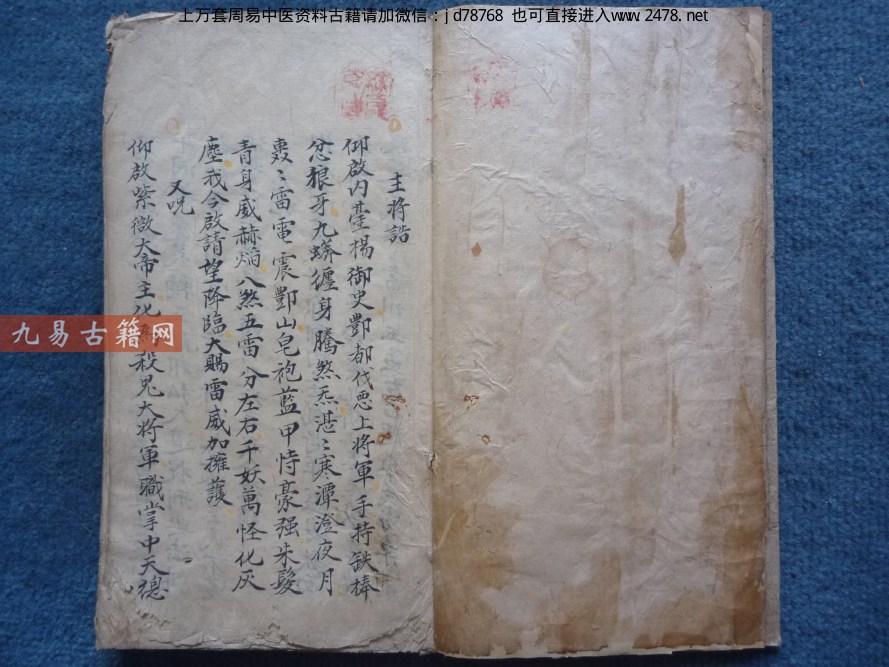 上万套周易中医资料古籍请加微信：jd78768 也可直接进入www.2478.net
主将誥
仰啟内臺楊御史酆都伐惡上将軍手持鉄棒
忿狼牙九蟒纏身騰煞炁湛〻寒潭澄夜月
轰〻雷電震酆山皂袍藍甲恃豪强朱髮
青身威赫焰八煞五雷分左右千妖萬怪化灰
塵我今啟請望降臨大賜雷威加擁護
又咒
仰啟紫微大帝主化殺鬼大将軍職掌中天總
九易古籍网